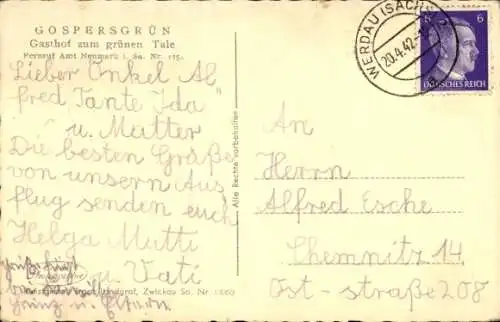 GOSPERSGRÜN
Gasthof zum grünen Tale
Fernruf Amt Neumark i. Sa. Nr. 175
Lieber Onkel Al
fred Tante Ida
u. Mutter
Die besten Grüße
von unsern Aus
flug senden euch
Helga Mutti
u. Vati
Heinz u. Eltern.
Zwickau Sa. Nr.
Alle Rechte vorbehalten
WERDAU (SACHS)
20.4.42
6 6
DEUTSCHES REICH
An
Herrn
Alfred Esche
Chemnitz 14
Ost-straße 208